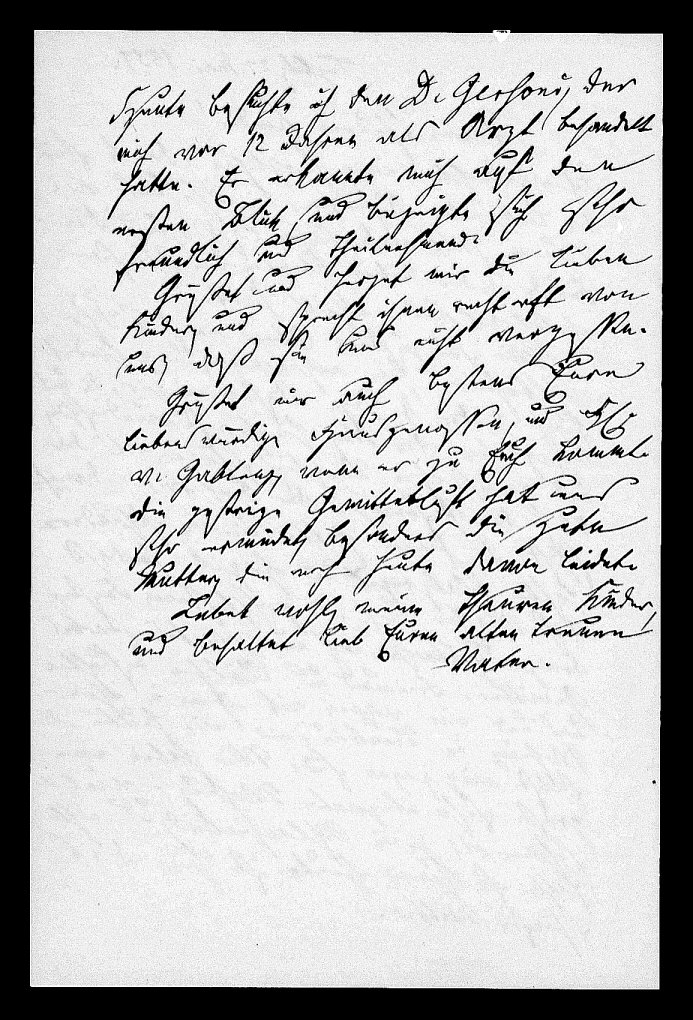 Heute besuchte ich den D. Gerhons, der
mich vor 12 Jahren als Arzt behandelt
hatte. Er erkannte mich auf den
ersten Blick, und bezeigte sich sehr
freundlich und theilnehmend.
Grüßet und herzet mir die lieben
Kinder, und sprecht ihnen recht oft von
uns, daß sie uns nicht vergessen.
Grüßet mir auch bestens Eure
liebenswürdige Hausgenossen, und H.
v. Gablenz, wenn er zu Euch kommt.
Die gestrige Gewitterluft hat uns
sehr ermüdet, besonders die gute
Mutter, die noch heute davon leidet.
Lebet wohl, meine theuren Kinder,
und behaltet lieb Euren alten treuen
Vater.